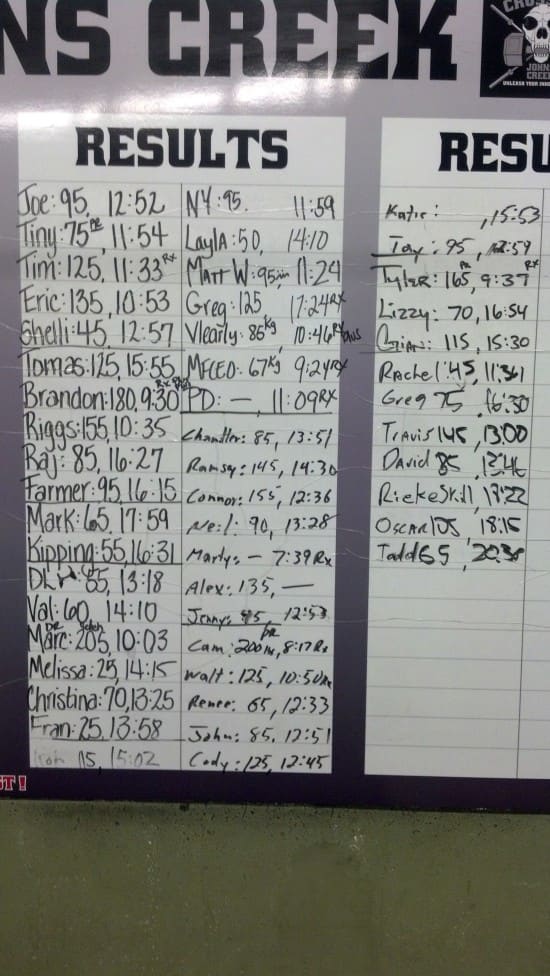 NS CREEK
JOHNS CREEK
RESULTS
Joe: 95, 12:52
Tiny: 75 PR, 11:54
Tim: 125, 11:33 RX
Eric: 135, 10:53
Shelli: 45, 12:57
Tomas: 125, 15:55
Brandon: 180, 9:30 RX
Riggs: 155, 10:35
Raj: 85, 16:27
Farmer: 95, 16:15
Mark: 65, 17:59
Kipping: 55, 16:31
85, 13:18
Val: 60, 14:10
Marc: 205, 10:03
Melissa: 25, 14:15
Christina: 70, 13:25
Fran: 25, 13:58
15:02
NY: 95. 11:59
Layla: 50, 14:10
Matt W: 95 11:24
Greg: 125 17:24 RX
Vlearly: 86 kg 10:46 RX plus
MFCEO: 67 kg 9:24 RX
PD: —, 11:09 RX
Chandler: 85, 13:51
Ramsey: 145, 14:30
Connor: 155, 12:36
Neil: 90, 13:28
Marty: — 7:39 Rx
Alex: 135, —
Jenny: 45, 12:53
Cam: 200 PR, 8:17 Rx
Walt: 125, 10:50 Rx
Renee: 65, 12:33
John: 85, 12:51
Cody: 125, 12:45
RESU
Katie: , 15:53
Tay: 95, 12:59
Tyler: 165 PR, 9:37 RX
Lizzy: 70, 16:54
Gian: 115, 15:30
Rachel: 45, 11:31
Greg 75, 16:30
Travis 145, 13:00
David 85, 13:46
13:22
Oscar 18:15
Todd 65,
ST!